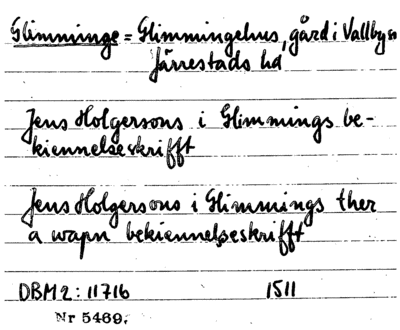 Glimminge = Glimmingehus, gård i Vallby sn
Järrestads hd
Jens Holgersons i Glimmings be-
kiennelseskrifft
Jens Holgersons i Glimmings ther
a wapn bekiennelsseskrifft
DBM 2: 11716 1511
Nr 5469.